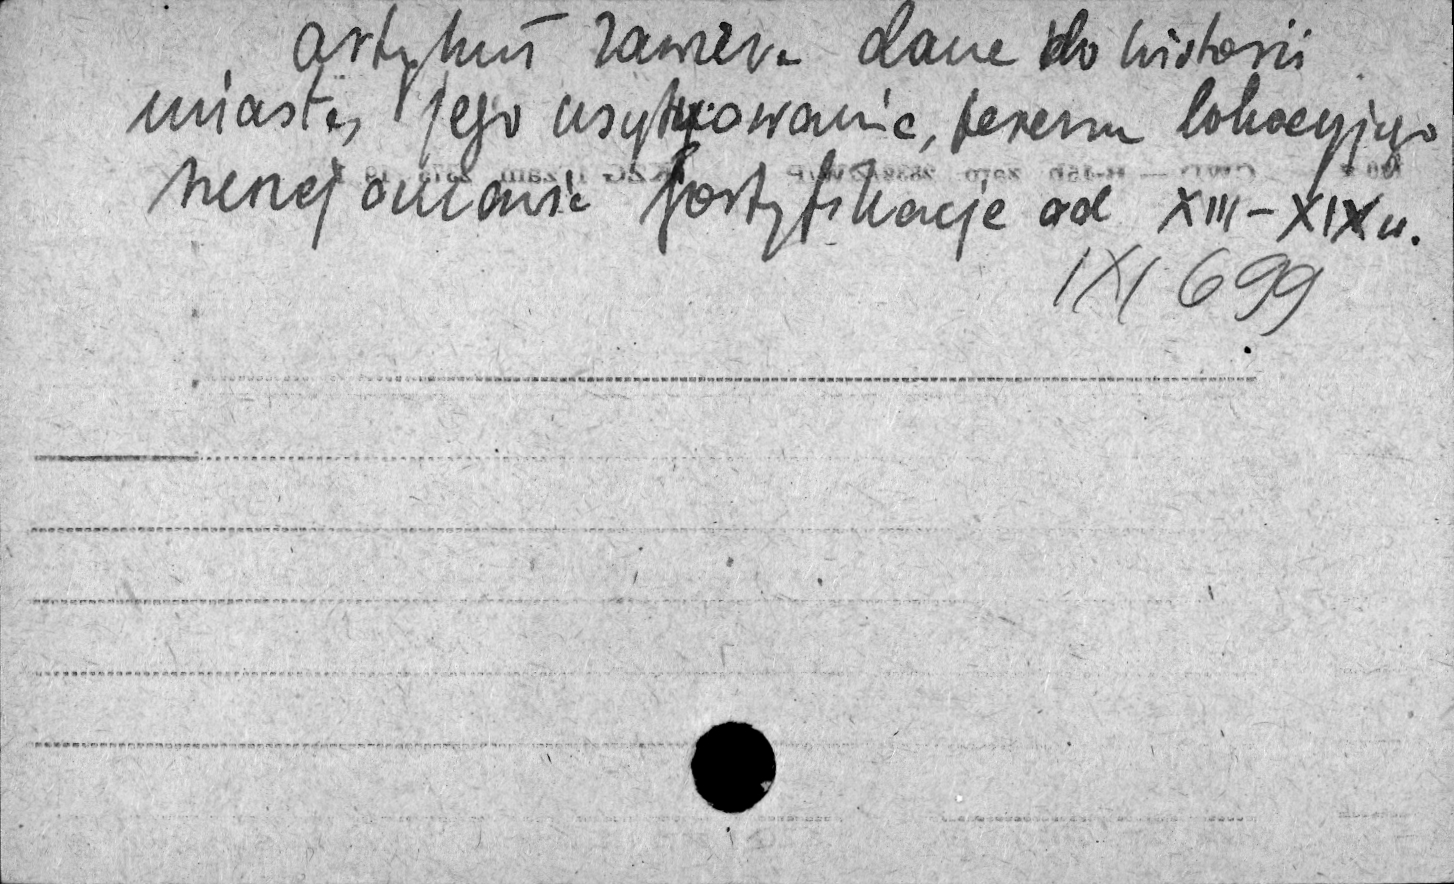 artykuł zawiera dane do historii
miasta, jego usytuowanie, terenu lokacyjnego
omawia fortyfikacje od XIII-XIX w.
IXI 699